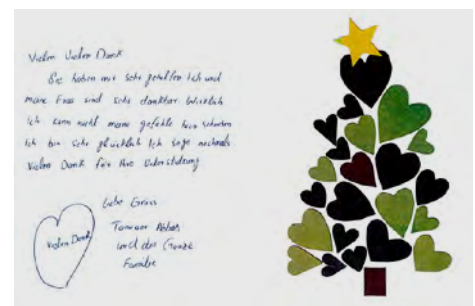 Vielen Vielen Dank
Sie haben mir sehr geholfen Ich und
meine Frau sind sehr dankbar Wirklich
Ich kann nicht meine gefühle hier schreiben
Ich bin sehr glücklich Ich sage nochmals
Vielen Dank für Ihre Unterstützung
Liebe Grüss
und der Ganze
Familie
Vielen Dank